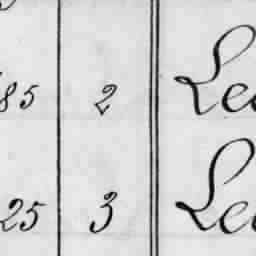 85 2 Le
25 3 Le